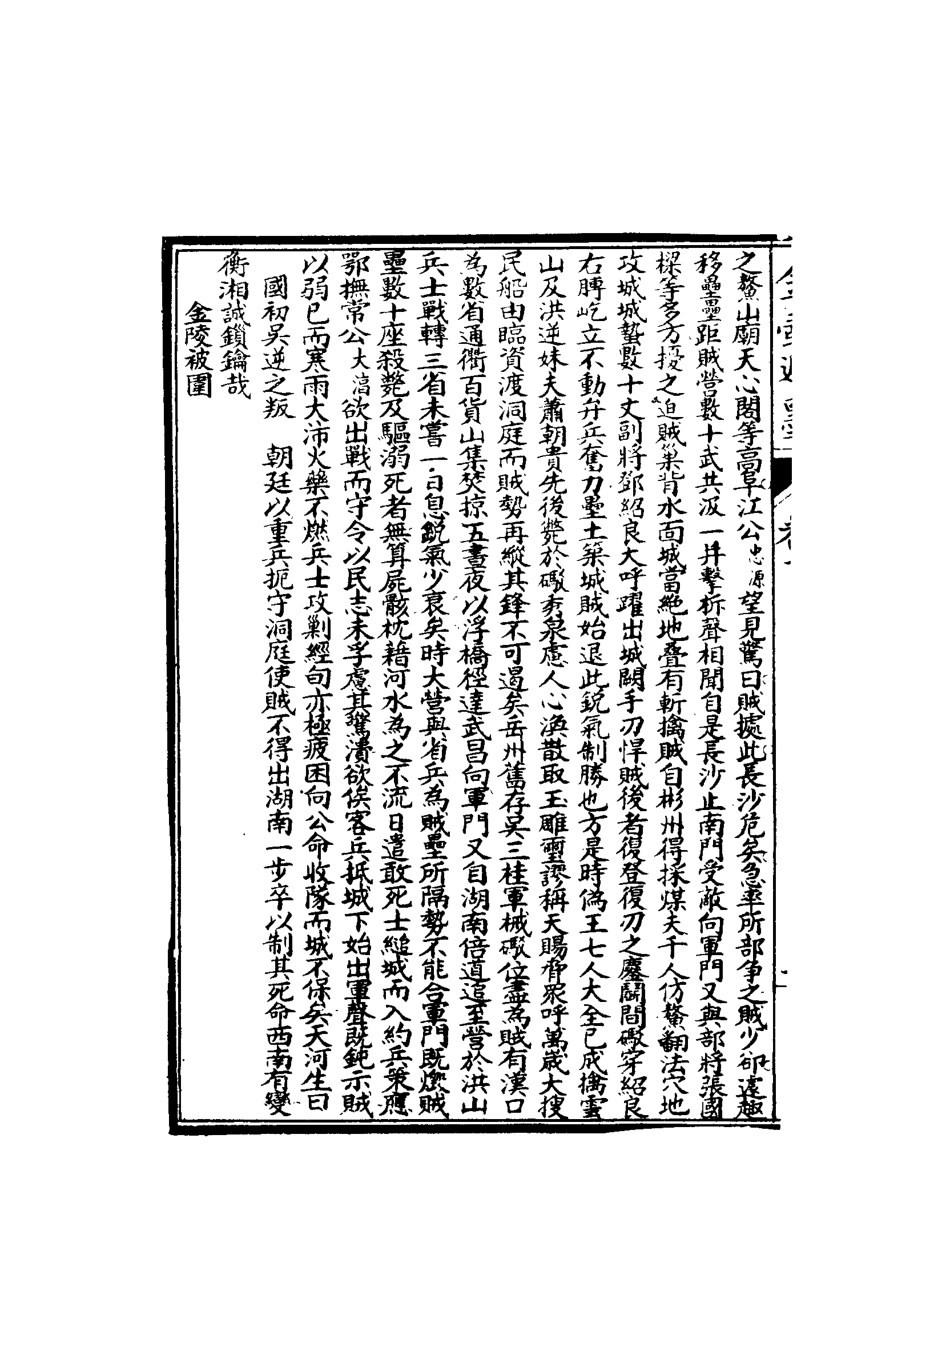 之鰲山廟天心閣等高阜江公忠源望見驚曰賊據此長沙危矣急率所部爭之賊少卻遽趣
移壘壘距賊營數十武共汲一井擊柝聲相聞自是長沙止南門受敵向軍門又與部將張國
樑等多方擾之迫賊巢背水面城當絕地疊有斬擒賊自彬州得採煤夫千人仿鰲翻法穴地
攻城城蟄數十丈副將鄧紹良大呼躍出城闕手刃悍賊後者復登復刃之鏖鬬間礮穿紹良
右膊屹立不動弁兵奮力壘土築城賊始退此銳氣制勝也方是時偽王七人大全已成擒雲
山及洪逆妹夫蕭朝貴先後斃於礮秀泉慮人心渙散取玉雕璽謬稱天賜脅眾呼萬歲大搜
民船由臨資渡洞庭而賊勢再縱其鋒不可遏矣岳州舊存吳三桂軍械礮位盡為賊有漢口
為數省通衢百貨山集焚掠五晝夜以浮橋徑達武昌向軍門又自湖南倍道追至營於洪山
兵士戰轉三省未嘗一日息銳氣少衰矣時大營與省兵為賊壘所隔勢不能合軍門既燬賊
壘數十座殺斃及驅溺死者無算屍骸枕藉河水為之不流日遣敢死士縋城而入約兵策應
鄂撫常公大淳欲出戰而守令以民志未孚慮其驚潰欲俟客兵抵城下始出軍聲既鈍示賊
以弱已而寒雨大沛火藥不燃兵士攻剿經旬亦極疲困向公命收隊而城不保矣天河生曰
國初吳逆之叛 朝廷以重兵扼守洞庭使賊不得出湖南一步卒以制其死命西南有變
衡湘誠鎖鑰哉
金陵被圍